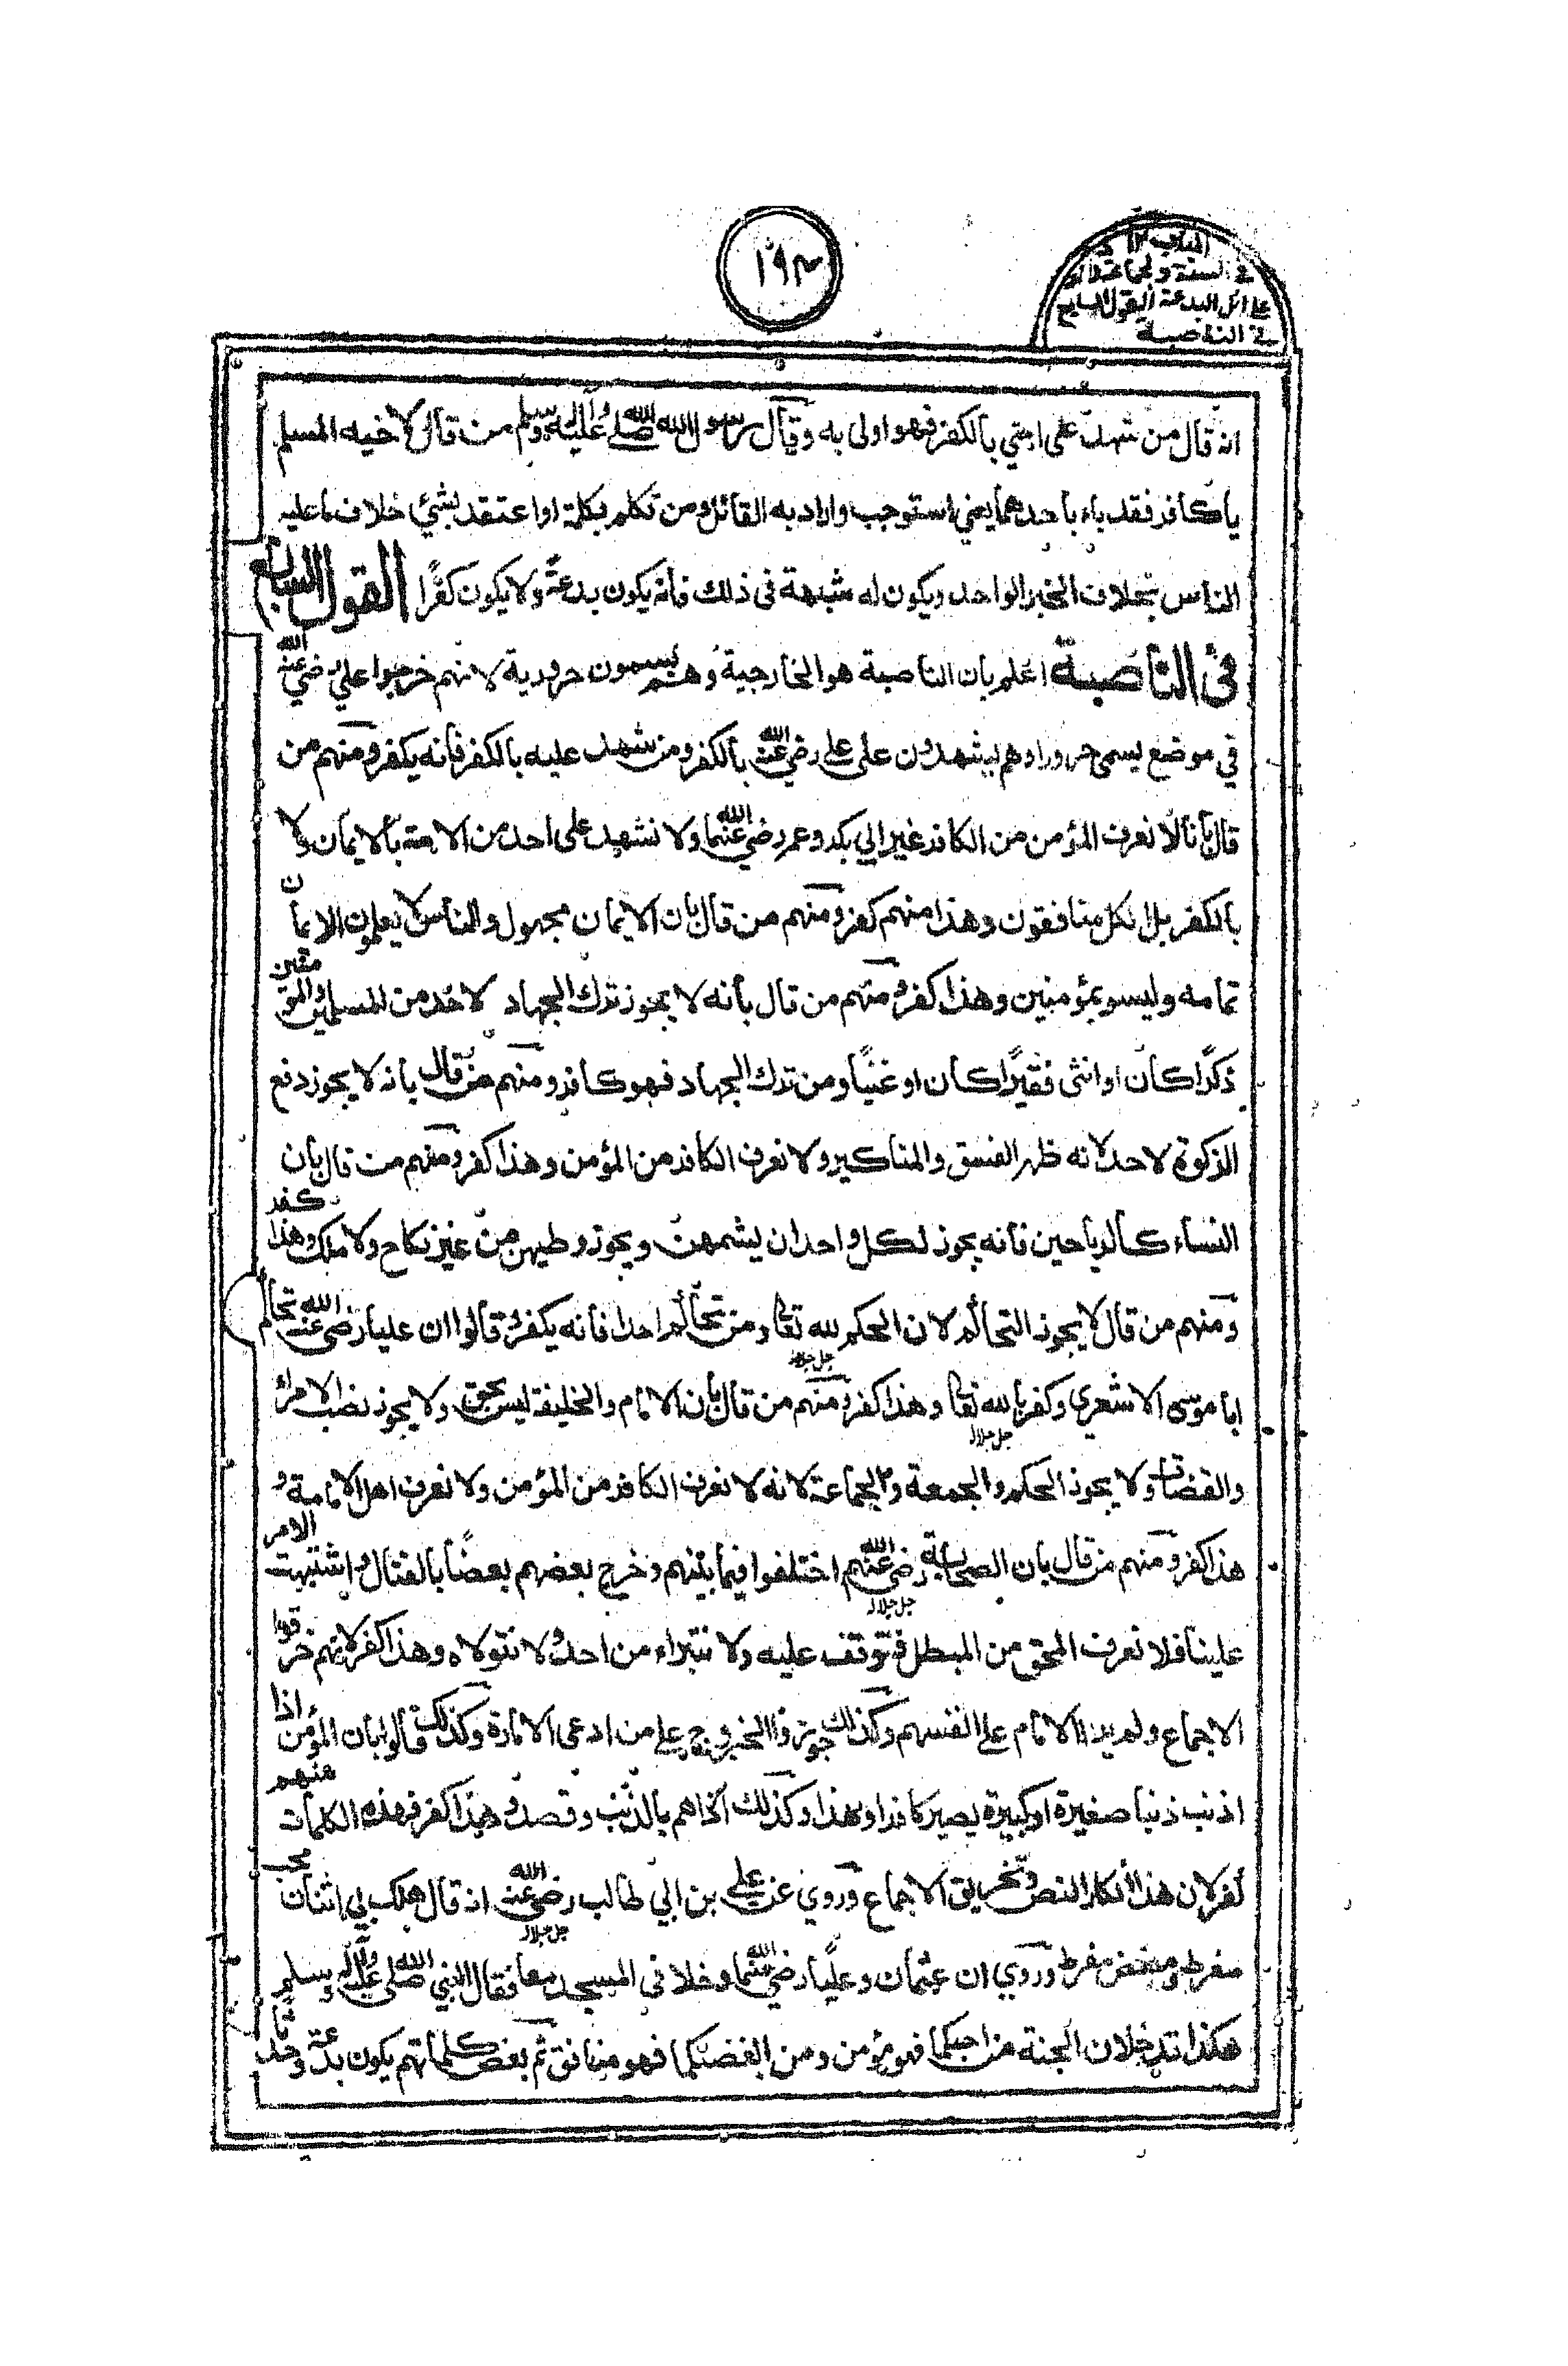 ١٩٣
الباب ١٢
في السنة والجماعة والرد
على اهل البدعة القول السابع
في الناصبة
انه قال من شهد على امتي بالكفر فهو اولى به وقال رسول الله صلى الله عليه واله وسلم من قال لاخيه المسلم
يا كافر فقد باء باحدهما يعني استوجب واراد به القائل ومن تكلم بكلمة او اعتقد بشيء خلاف ما عليه
الناس بخلاف الخبر الواحد ويكون له شبهة في ذلك فانه يكون بدعةً ولا يكون كفرًا القول السابع
في الناصبة اعلم بان الناصبة هو الخارجية وهم يسمون حرورية لانهم خرجوا على علي رضي الله عنه
في موضع يسمى حرورا وهم يشهدون على علي رضي الله عنه بالكفر ومن شهد عليه بالكفر فانه يكفر ومنهم من
قال بانا لا نعرف المؤمن من الكافر غير ابي بكر وعمر رضي الله عنهما ولا نشهد على احد من الامة بالايمان ولا
بالكفر بل الكل منافقون وهذا منهم كفر ومنهم من قال بان الايمان مجهول والناس لا يعلمون الايمان
تمامه وليسو بمؤمنين وهذا كفر ومنهم من قال بانه لا يجوز ترك الجهاد لاحد من المسلمين والمؤمنين
ذكرًا كان او انثى فقيرًا كان او غنيًا ومن ترك الجهاد فهو كافر ومنهم من قال بانه لا يجوز دفع
الزكوة لاحد لانه ظهر الفسق والمناكير ولا نعرف الكافر من المؤمن وهذا كفر ومنهم من قال بان
النساء كالرياحين فانه يجوز لكل واحد ان يشمهن ويجوز وطيهن من غير نكاح ولا ملك وهذا كفر
ومنهم من قال لا يجوز التحاكم لان الحكم لله تعالى ومن تحاكم احدا فانه يكفر وقالوا ان عليا رضي الله عنه تحاكم
ابا موسى الاشعري وكفر بالله تعالى جل جلاله وهذا كفر ومنهم من قال بان الامام والخليفة ليس بحق ولا يجوز نصب الامراء
والقضات ولا يجوز الحكم والجمعة والجماعة لانه لا نعرف الكافر من المؤمن ولا نعرف اهل الامامة و
هذا كفر ومنهم من قال بان الصحابة رضي الله عنهم اختلفوا فيما بينهم وخرج بعضهم بعضًا بالقتال واشتبهت الامر
علينا فلا نعرف المحق من المبطل فنتوقف عليه ولا نتبراء من احد ولا نتولاه وهذا كفر لانهم خرقوا
الاجماع ولم يروا الامام على انفسهم وكذلك جوزوا الخروج على من ادعى الامارة وكذلك قالوا بان المؤمن اذا
اذنب ذنبا صغيرة او كبيرة يصير كافرا وبهذا وكذلك اخاهم بالذنب وقصد وهذا كفر فهذه الكلمات منهم
كفر لان هذا انكار النص وتخريق الاجماع وروي عن علي بن ابي طالب رضي الله عنه انه قال هلك بي اثنان محب
مفرط ومبغض مفرط وروي ان عثمان وعليًا رضي الله عنهما دخلا في المسجد معا فقال النبي صلى الله عليه واله وسلم
هكذا تدخلان الجنة من احبكما فهو مؤمن ومن ابغضكما فهو منافق ثم بعض كلماتهم يكون بدعة